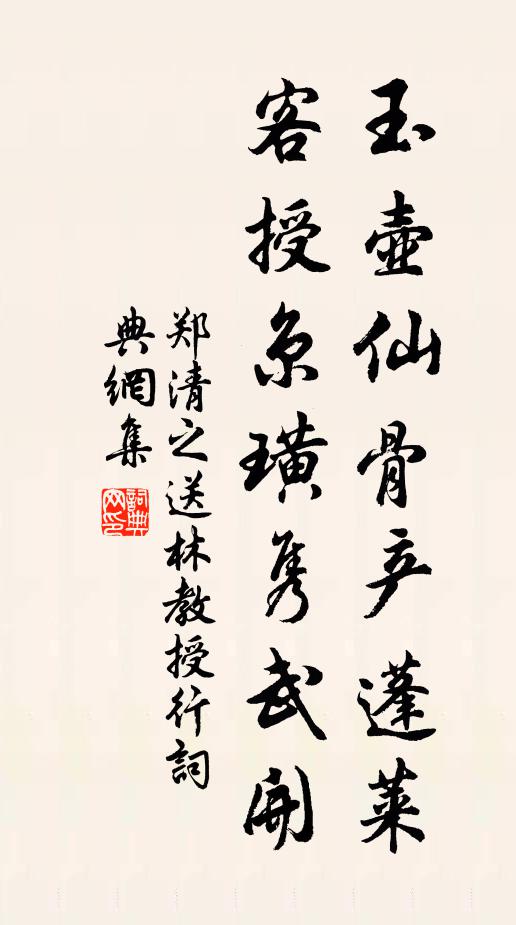 玉壶仙骨产蓬莱
客授京璜隽武开
郑清之送林教授行詞
典網集
詞典网印